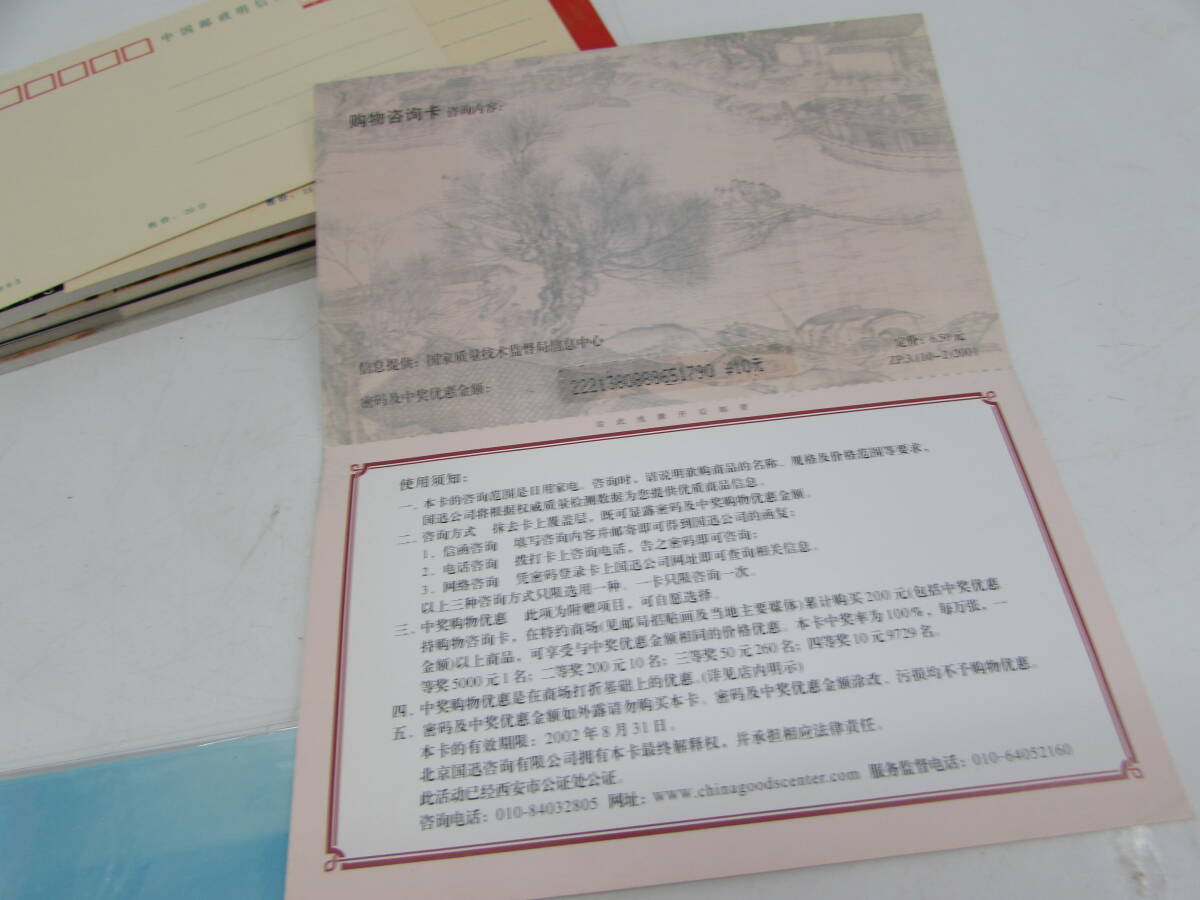 中国邮政明信
售价:
购物咨询卡 咨询内容:
信息提供: 国家质量技术监督局信息中心
定价: 6.50元
密码及中奖优惠金额:
2221380888651790 #10元
ZP.3.(10-2)2001
沿此线撕开后邮寄
使用须知:
一. 本卡的咨询范围是日用家电。咨询时, 请说明欲购商品的名称、规格及价格范围等要求,
国迅公司将根据权威质量检测数据为您提供优质商品信息。
二. 咨询方式 抹去卡上覆盖层, 既可显露密码及中奖购物优惠金额。
1. 信函咨询 填写咨询内容并邮寄即可得到国迅公司的函复;
2. 电话咨询 拨打卡上咨询电话, 告之密码即可咨询;
3. 网络咨询 凭密码登录卡上国迅公司网址即可查询相关信息。
以上三种咨询方式只限选用一种。一卡只限咨询一次。
三. 中奖购物优惠 此项为附赠项目, 可自愿选择。
持购物咨询卡, 在特约商场(见邮局招贴画及当地主要媒体)累计购买200元(包括中奖优惠
金额)以上商品, 可享受与中奖优惠金额相同的价格优惠。本卡中奖率为100%, 每万张, 一
等奖5000元1名; 二等奖200元10名; 三等奖50元260名; 四等奖10元9729名。
四. 中奖购物优惠是在商场打折基础上的优惠。(详见店内明示)
五. 密码及中奖优惠金额如外露请勿购买本卡。密码及中奖优惠金额涂改、污损均不予购物优惠。
本卡的有效期限: 2002年8月31日。
北京国迅咨询有限公司拥有本卡最终解释权, 并承担相应法律责任。
此活动已经西安市公证处公证。
咨询电话: 010-84032805 网址: www.chinagoodscenter.com 服务监督电话: 010-64052160